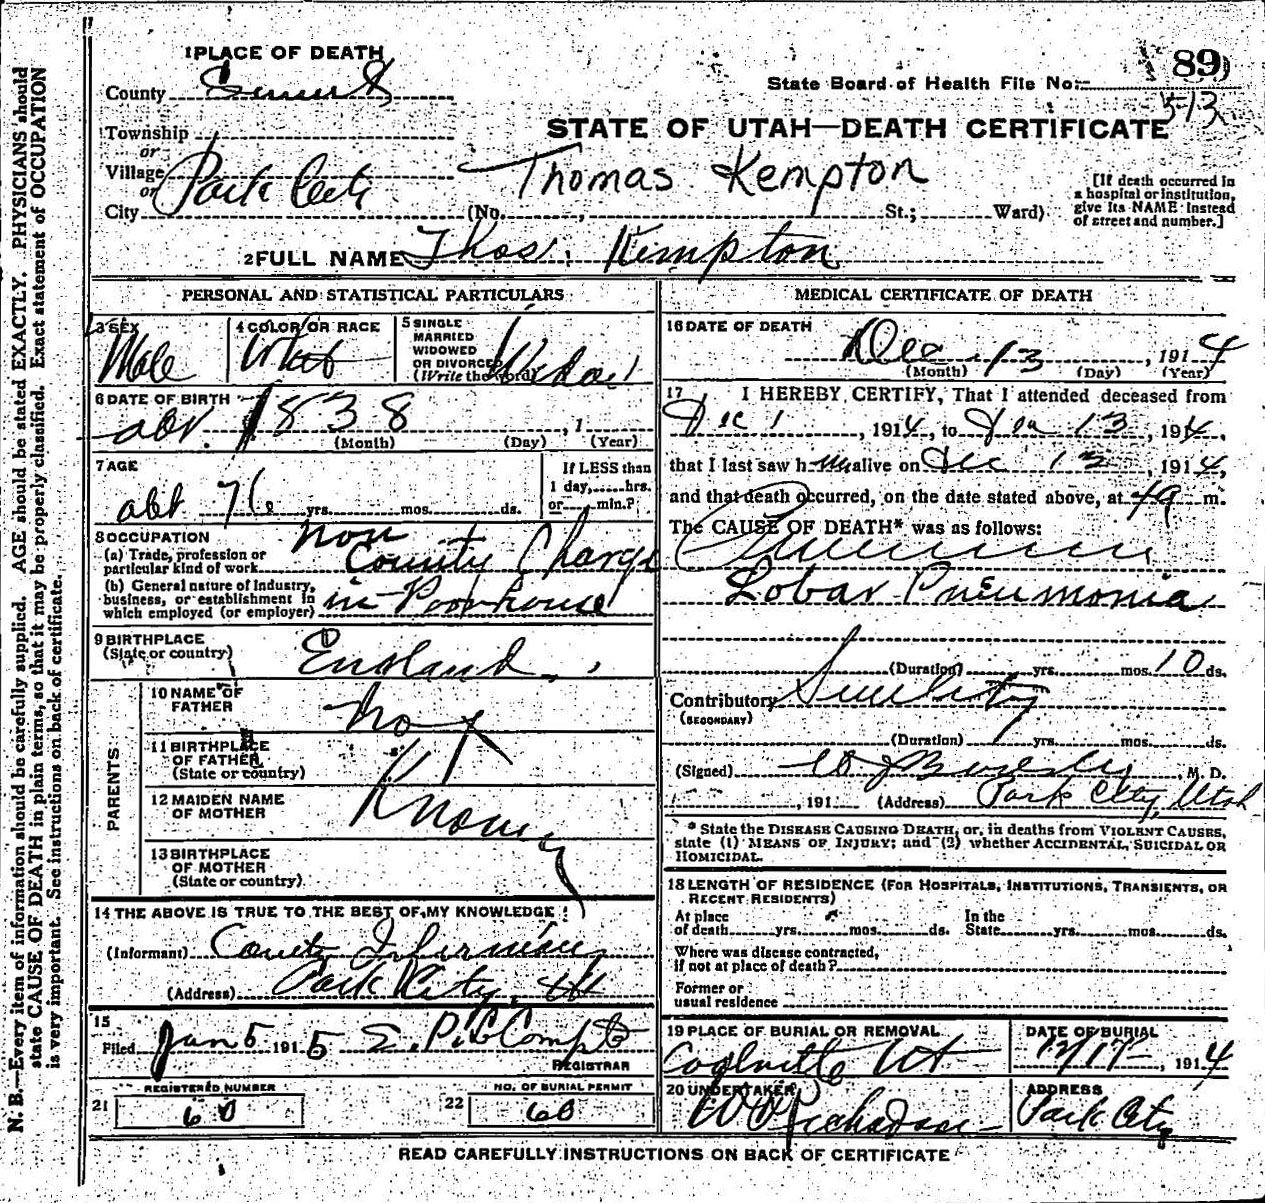 N. B.—Every item of information should be carefully supplied. AGE should be stated EXACTLY. PHYSICIANS should
state CAUSE OF DEATH in plain terms, so that it may be properly classified. Exact statement of OCCUPATION
is very important. See instructions on back of certificate.
1 PLACE OF DEATH
89
State Board of Health File No.
County Summit
513
Township
STATE OF UTAH—DEATH CERTIFICATE
or
Village
or
City Park City
Thomas Kempton
(No. , St.; Ward)
[If death occurred in
a hospital or institution,
give its NAME instead
of street and number.]
2 FULL NAME Thos. Kempton
PERSONAL AND STATISTICAL PARTICULARS
3 SEX
Male
4 COLOR OR RACE
White
5 SINGLE
MARRIED
WIDOWED
OR DIVORCED
(Write the word)
6 DATE OF BIRTH
abt. 1838
(Month) (Day) , 1 (Year)
7 AGE
abt 76 yrs. mos. ds.
If LESS than
1 day, hrs.
or min.?
8 OCCUPATION
(a) Trade, profession or
particular kind of work
non
County Charge
(b) General nature of industry,
business, or establishment in
which employed (or employer)
in Poorhouse
9 BIRTHPLACE
(State or country)
England
PARENTS
10 NAME OF
FATHER
not
11 BIRTHPLACE
OF FATHER
(State or country)
12 MAIDEN NAME
OF MOTHER
Known
13 BIRTHPLACE
OF MOTHER
(State or country)
14 THE ABOVE IS TRUE TO THE BEST OF MY KNOWLEDGE
(Informant) County
(Address) Park City, Ut
15
Filed Jan 5 1915
REGISTRAR
REGISTERED NUMBER
21 60
NO. OF BURIAL PERMIT
22 60
MEDICAL CERTIFICATE OF DEATH
16 DATE OF DEATH
Dec 13, 1914
(Month) (Day) (Year)
17 I HEREBY CERTIFY, That I attended deceased from
Dec 1, 1914, to Dec 13, 1914,
that I last saw him alive on Dec 13, 1914,
and that death occurred, on the date stated above, at m.
The CAUSE OF DEATH* was as follows:
Pneumonia
Lobar Pneumonia
(Duration) yrs. mos. 10 ds.
Contributory Senility
(SECONDARY)
(Duration) yrs. mos. ds.
(Signed) M. D.
, 191 (Address) Park City, Utah
* State the DISEASE CAUSING DEATH, or, in deaths from VIOLENT CAUSES,
state (1) MEANS OF INJURY; and (2) whether ACCIDENTAL, SUICIDAL OR
HOMICIDAL.
18 LENGTH OF RESIDENCE (FOR HOSPITALS, INSTITUTIONS, TRANSIENTS, OR
RECENT RESIDENTS)
At place
of death yrs. mos. ds.
In the
State yrs. mos. ds.
Where was disease contracted,
if not at place of death?
Former or
usual residence
19 PLACE OF BURIAL OR REMOVAL
Coalville Ut
DATE OF BURIAL
12/17, 1914
20 UNDERTAKER
W Richardson
ADDRESS
Park City
READ CAREFULLY INSTRUCTIONS ON BACK OF CERTIFICATE